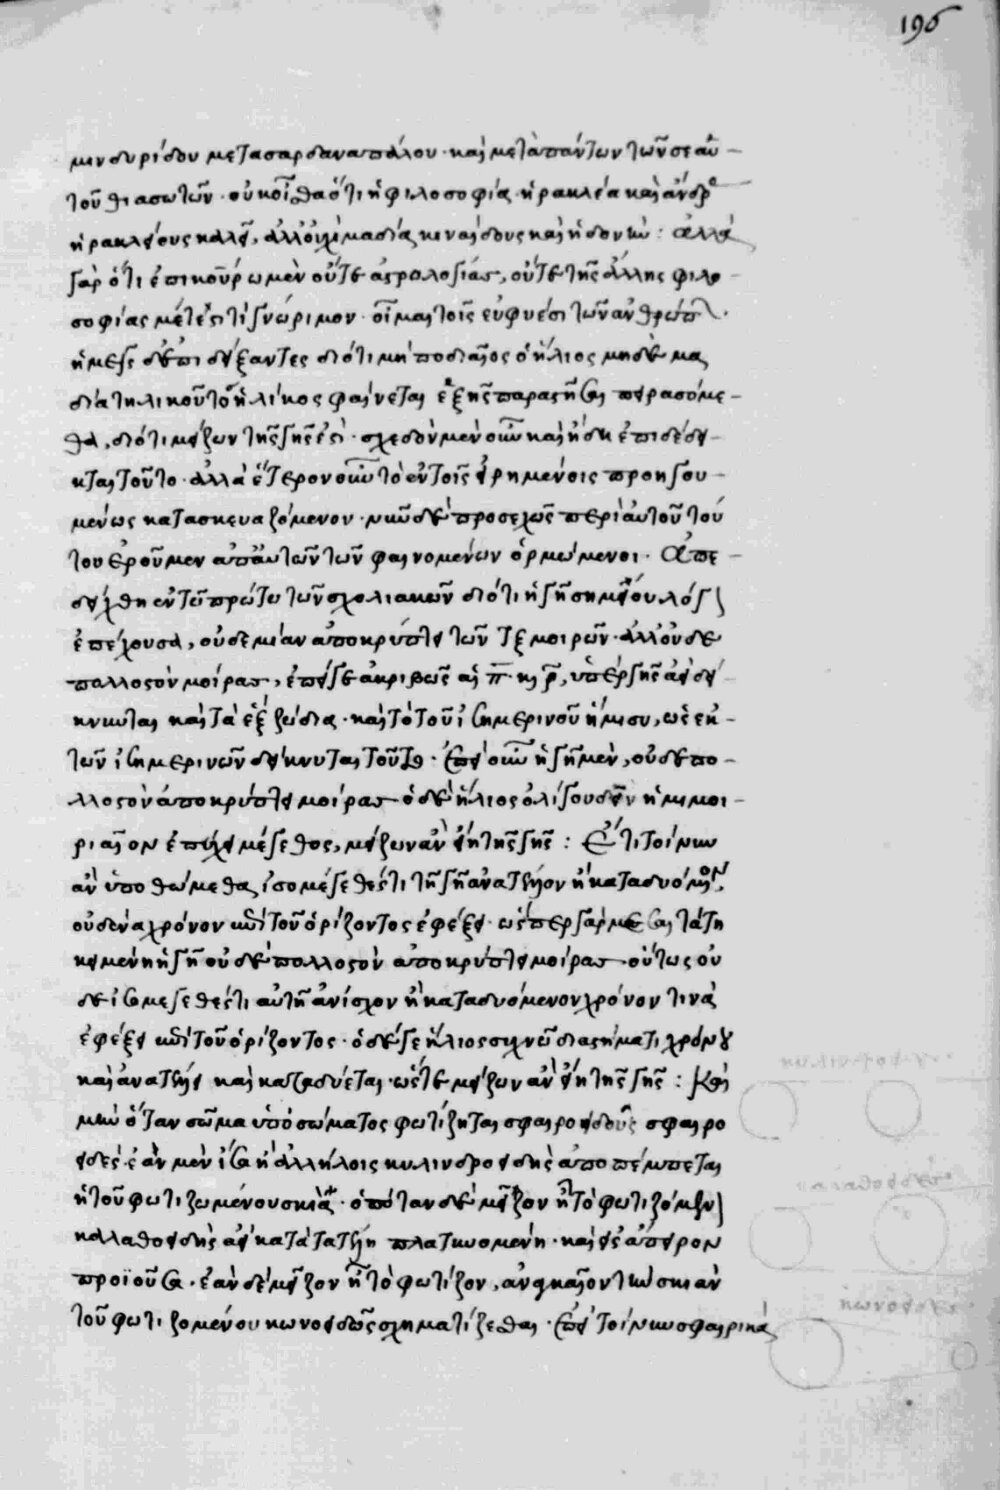 196
μινδυρίδου μετὰ σαρδαναπάλου· καὶ μετὰ πάντων τῶν σεαυ-
τοῦ θιασωτῶν· οὐκ οἶσθα ὅτι ἡ φιλοσοφία· ἡρακλέα καὶ ἄνδρας
ἡρακλείους καλεῖ, ἀλλ' οὐχὶ μὰ δία κιναίδους καὶ ἡδονὴν: Ἀλλὰ
γὰρ ὅτι ἐπικούρω μὲν οὔτε ἀστρολογίας, οὔτε τῆς ἄλλης φιλο-
σοφίας μέτεστι γνώριμον· οἶμαι τοῖς εὐφυέσι τῶν ἀνθρώπων.
ἡμεῖς δὲ ἐπιδείξαντες διότι μὴ ποδιαῖος ὁ ἥλιος μηδὲ μα
δία τηλικοῦτος ἡλίκος φαίνεται ἑξῆς παραστῆσαι πειρασόμε-
θα, διότι μείζων τῆς γῆς ἐστὶ· σχεδὸν μὲν οὖν καὶ ἤδη ἐπιδέδει-
κται τοῦτο· ἀλλὰ ἕτερον οὖν τὸ ἐν τοῖς εἰρημένοις προηγου-
μένως κατασκευαζόμενον· νῦν δὲ προσεχῶς περὶ αὐτοῦ τού
του ἐροῦμεν ἀπ' αὐτῶν τῶν φαινομένων ὁρμώμενοι· Ἀπε-
δείχθη ἐν τῶ πρώτω τῶν σχολικῶν διότι ἡ γῆ σημείου λόγον
ἐπέχουσα, οὐδεμίαν ἀποκρύπτει τῶν τξ μοιρῶν· ἀλλ' οὐδὲ
πολλοστὸν μοίρας, ἐπεί γε ἀκριβῶς αἱ π καὶ ρ, ὑπὲρ γῆς ἀεὶ δεί-
κνυται καὶ τὰ ἓξ ζώδια· καὶ τὸ τοῦ ἰσημερινοῦ ἥμισυ, ὡς ἐκ
τῶν ἰσημερινῶν δείκνυται τοῦτο· Ἐπεὶ οὖν ἡ γῆ μὲν, οὐδὲ πο-
λλοστὸν ἀποκρύπτει μοίρας ὁ δὲ ἥλιος ὀλίγου δεῖν ἡμιμοι-
ριαῖον ἐπέχει μέγεθος, μείζων ἂν εἴη τῆς γῆς: Ἔτι τοίνυν
ἂν ὑποθώμεθα ἰσομέγεθές τι τῆ γῆ ἀνατεῖλον ἢ καταδυόμενον,
οὐδένα χρόνον ἐπὶ τοῦ ὁρίζοντος ἐφέξει· ὥσπερ γὰρ μεσαιτάτη
κειμένη ἡ γῆ οὐδὲ πολλοστὸν ἀποκρύπτει μοίρας οὕτως οὐ
δὲ ἰσομέγεθές τι αὐτῆ ἀνίσχον ἢ καταδυόμενον χρόνον τινὰ
ἐφέξει ἐπὶ τοῦ ὁρίζοντος· ὁ δέ γε ἥλιος συχνῶ διαστήματι χρόνου
καὶ ἀνατέλλει καὶ καταδύεται· ὥστε μείζων ἂν εἴη τῆς γῆς: Καὶ
μὴν ὅταν σῶμα ὑπὸ σώματος φωτίζηται σφαιροειδοῦς σφαιρο
ειδές· ἐὰν μὲν ἴσα ἢ ἀλλήλοις κυλινδροειδὴς ἀποπέμπεται
ἡ τοῦ φωτιζομένου σκιὰ· ὁπόταν δὲ μεῖζον ἦ τὸ φωτιζόμενον
καλαθοειδὴς ἀεὶ κατὰ τάτη πλατυνομένη· καὶ εἰς ἄπειρον
προϊοῦσα· ἐὰν δὲ μεῖζον ἦ τὸ φωτίζον, ἀναγκαῖον τὴν σκιὰν
τοῦ φωτιζομένου κωνοειδῶς σχηματίζεσθαι· Ἐπεὶ τοίνυν σφαιρικά